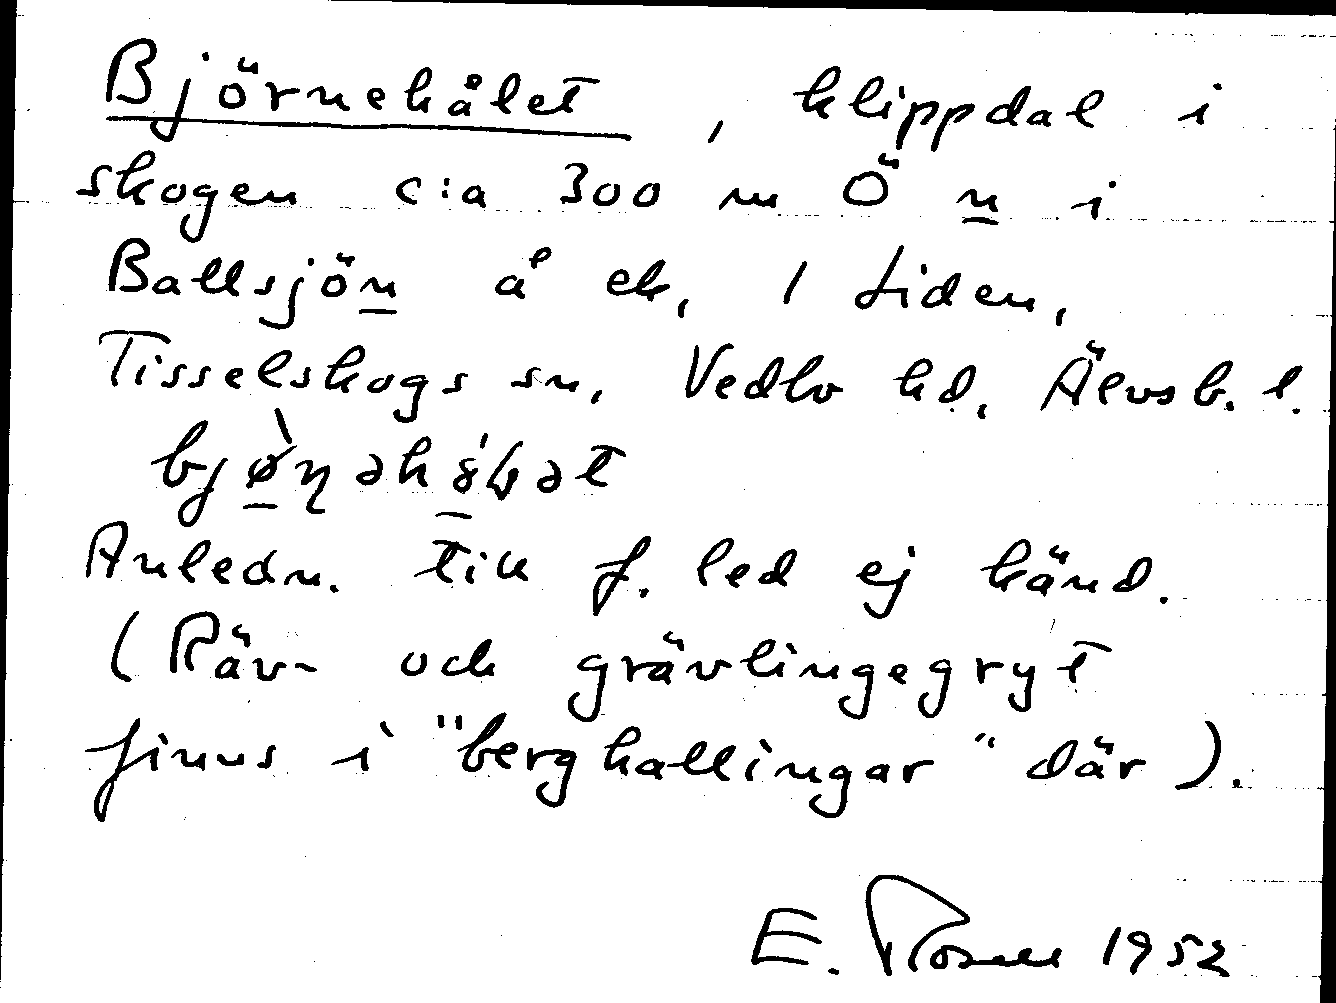 Björnehålet, klippdal i
skogen c:a 300 m Ö n i
Ballsjön å ek. 1 Liden,
Tisselskogs sn, Vedbo hd. Älvsb. l.
Anledn. till f. led ej känd.
(Räv- och grävlingegryt
finns i "berghallingar" där).
E. 1952